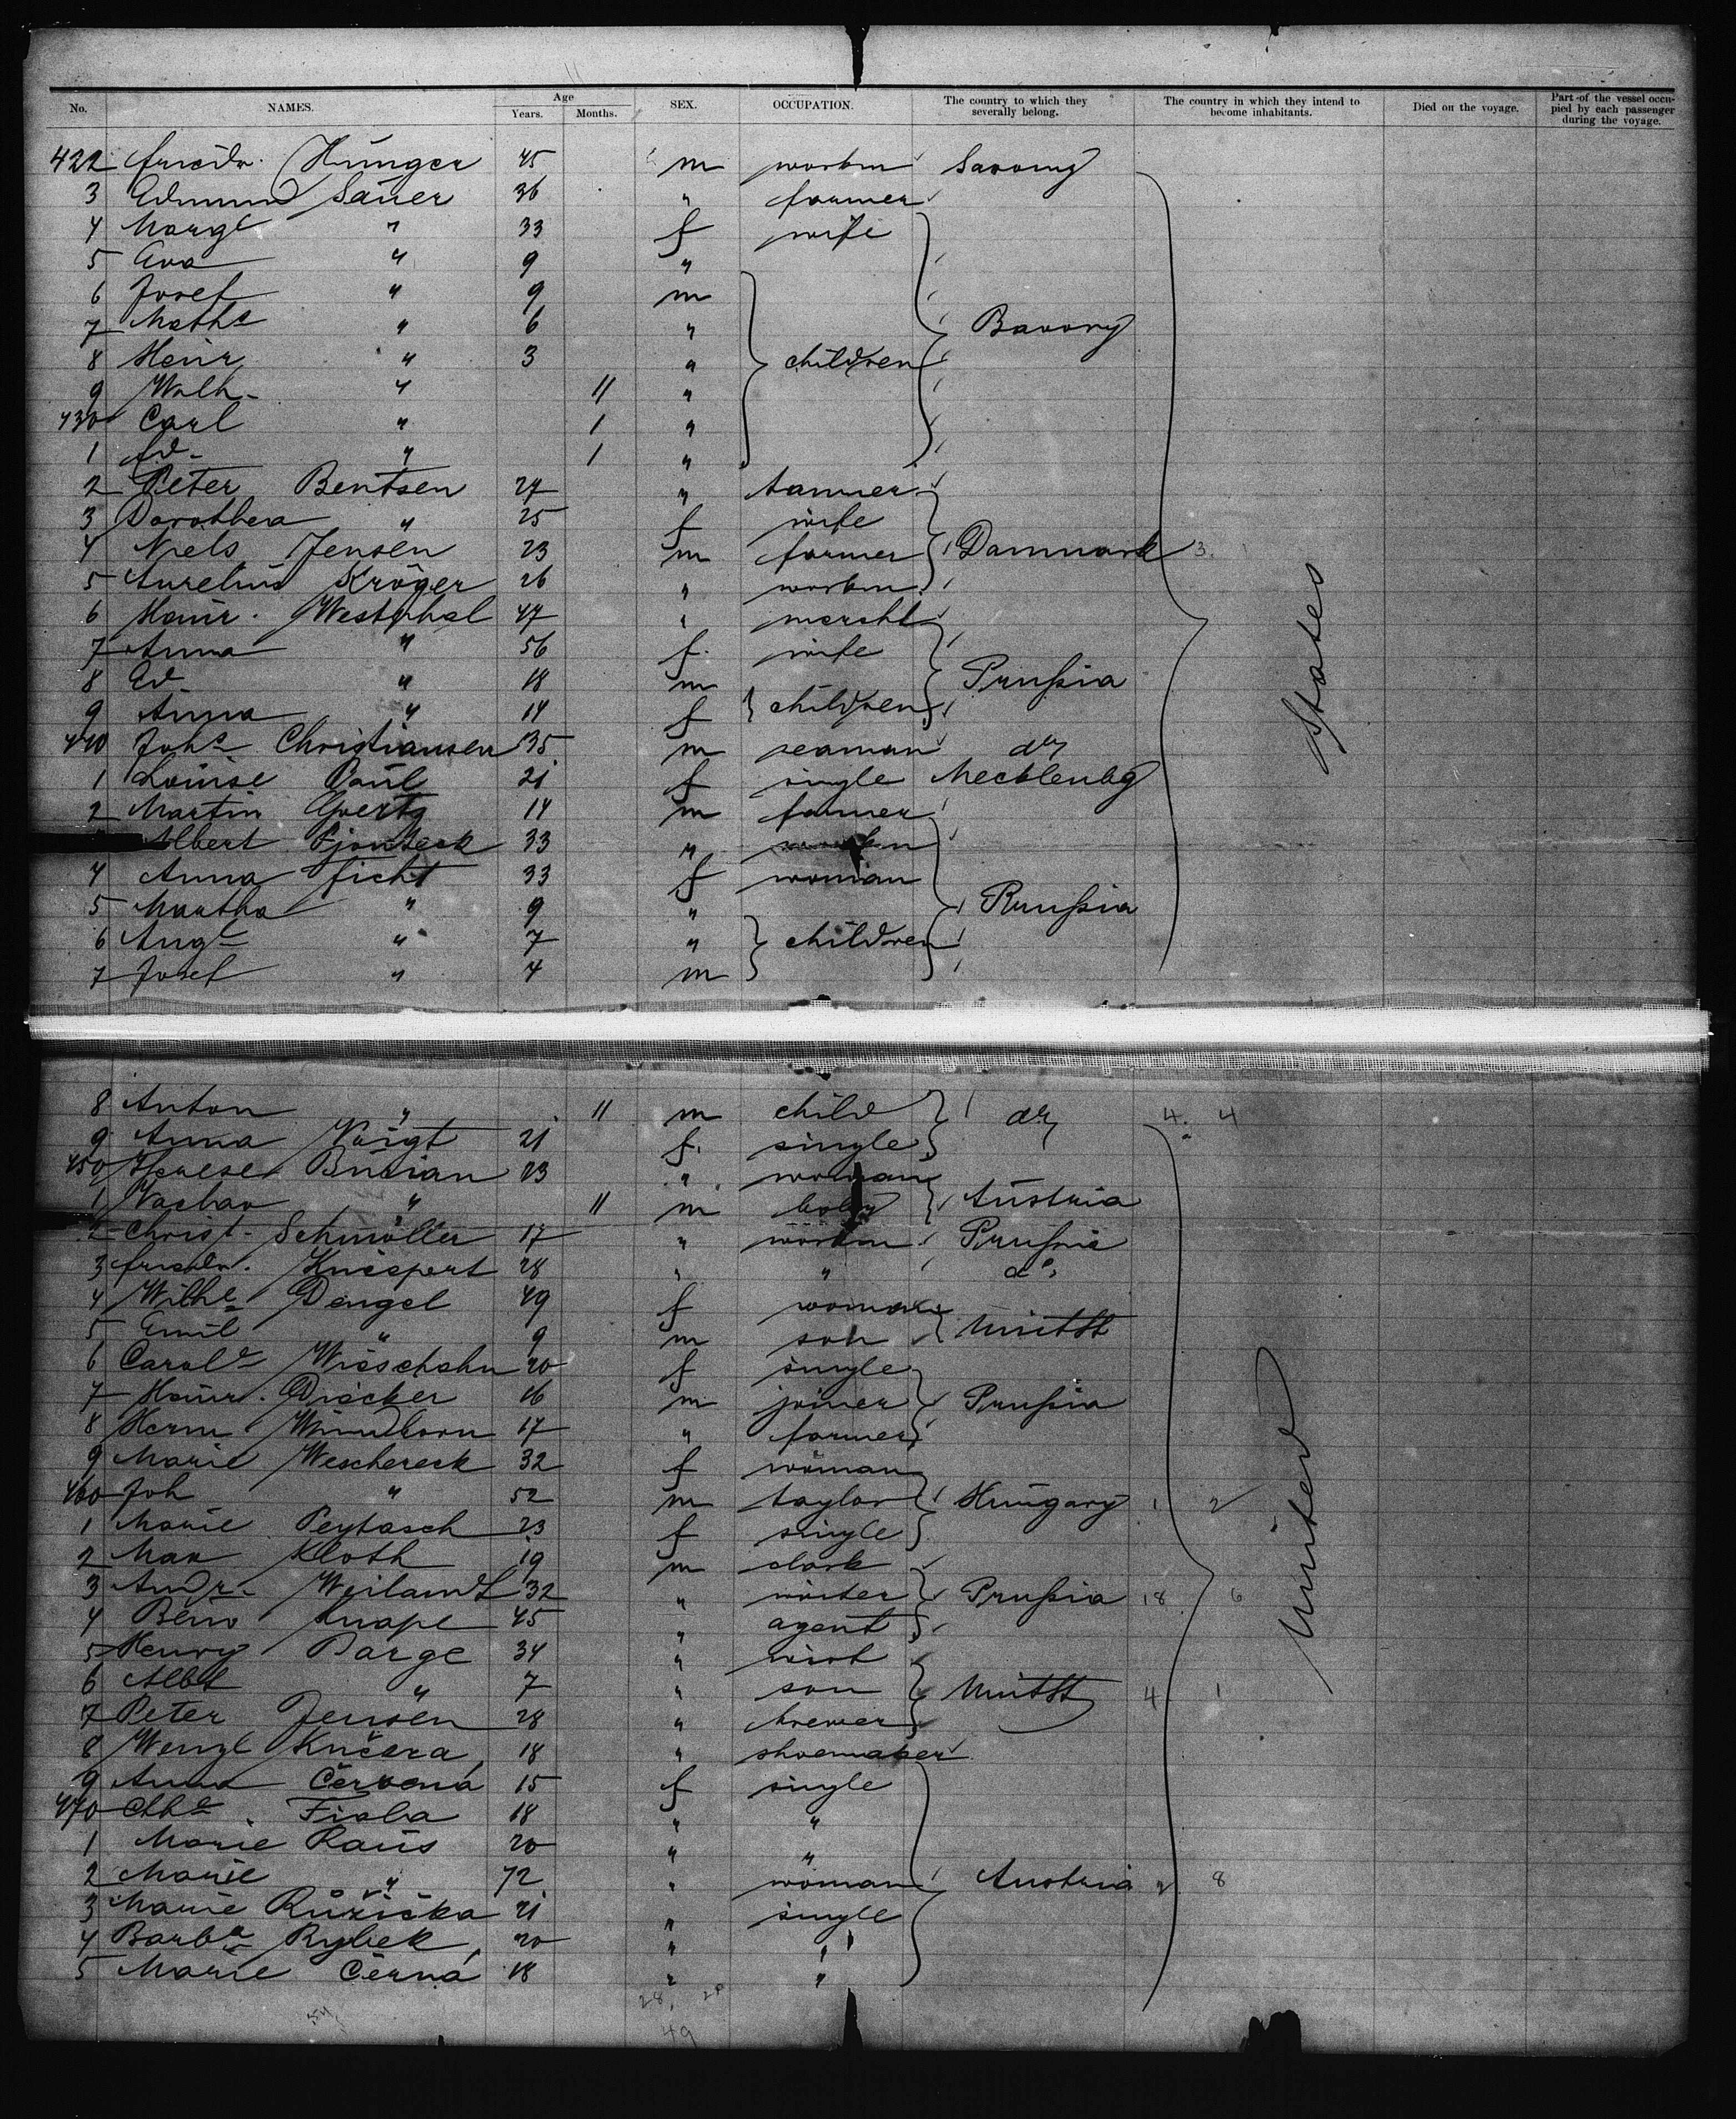 No. NAMES. Age Years. Months. SEX. OCCUPATION. The country to which they severally belong. The country in which they intend to become inhabitants. Died on the voyage. Part of the vessel occupied by each passenger during the voyage.
422 Friedr. Hünger 45 m workm Saxony
3 Edmund Saüer 36 " farmer
4 Margt " 33 f wife
5 Eva " 9 "
6 Josef " 9 m
7 Maths " 6 " Bavory
8 Heinr " 3 " children
9 Wilh. " 11 "
430 Carl " 1 "
1 Fd. " 1 "
2 Peter Bentsen 27 " tanner
3 Dorothea " 25 f wife
4 Niels Jensen 23 m farmer Danmark 3.
5 Aurelius Kröger 26 " workm
6 Heinr. Westphal 47 " mercht
7 Anna " 56 f. wife
8 Ed " 18 m Prußia
9 Anna " 14 f children
440 Johs Christiansen 35 m seaman do
1 Loüise Paül 21 f single Mecklenbg
2 Martin Goertz 14 m farmer
Albert Pjonteck 33 " workm
4 Anna Ficht 33 f woman
5 Martha " 9 " Prußia
6 Augt " 7 " children
7 Josef " 4 m
States
8 Anton " 11 m child do 4. 4
9 Anna Voigt 21 f. single
450 Burian 23 " woman
1 Vaclav " 11 m baby Aüstria
2 Christ. Schmöller 17 " workm Prußia
3 Friedr. Kniespert 28 " " do
4 Wilhe Dengel 49 f woman
5 Emil " 9 m son UnitSt
6 Carole Wieschahn 20 f single
7 Heinr. Diecker 16 m joiner Prußia
8 Herm Windhorn 17 " farmer
9 Marie Weschereck 32 f woman
460 Joh " 52 m taylor Hüngary 1 2
1 Marie Peytasch 23 f single
2 Max Kloth 19 m clark
3 Andr. Weilandt 32 " Prußia 18 6
4 Beno Knape 45 " agent
5 Henry Darge 34 "
6 Albt " 7 " son UnitSt 4 1
7 Peter Jensen 28 " brewer
8 Wenzl Kučera 18 " shoemaker
9 Anna Červená 15 f single
470 Fiala 18 " "
1 Marie Raüs 20 " "
2 Marie " 72 " woman Austria 2. 8
3 Marie Růžička 21 " single
4 Barba Rybek 20 " "
5 Marie Černá 18 " "
United
54 28. 49